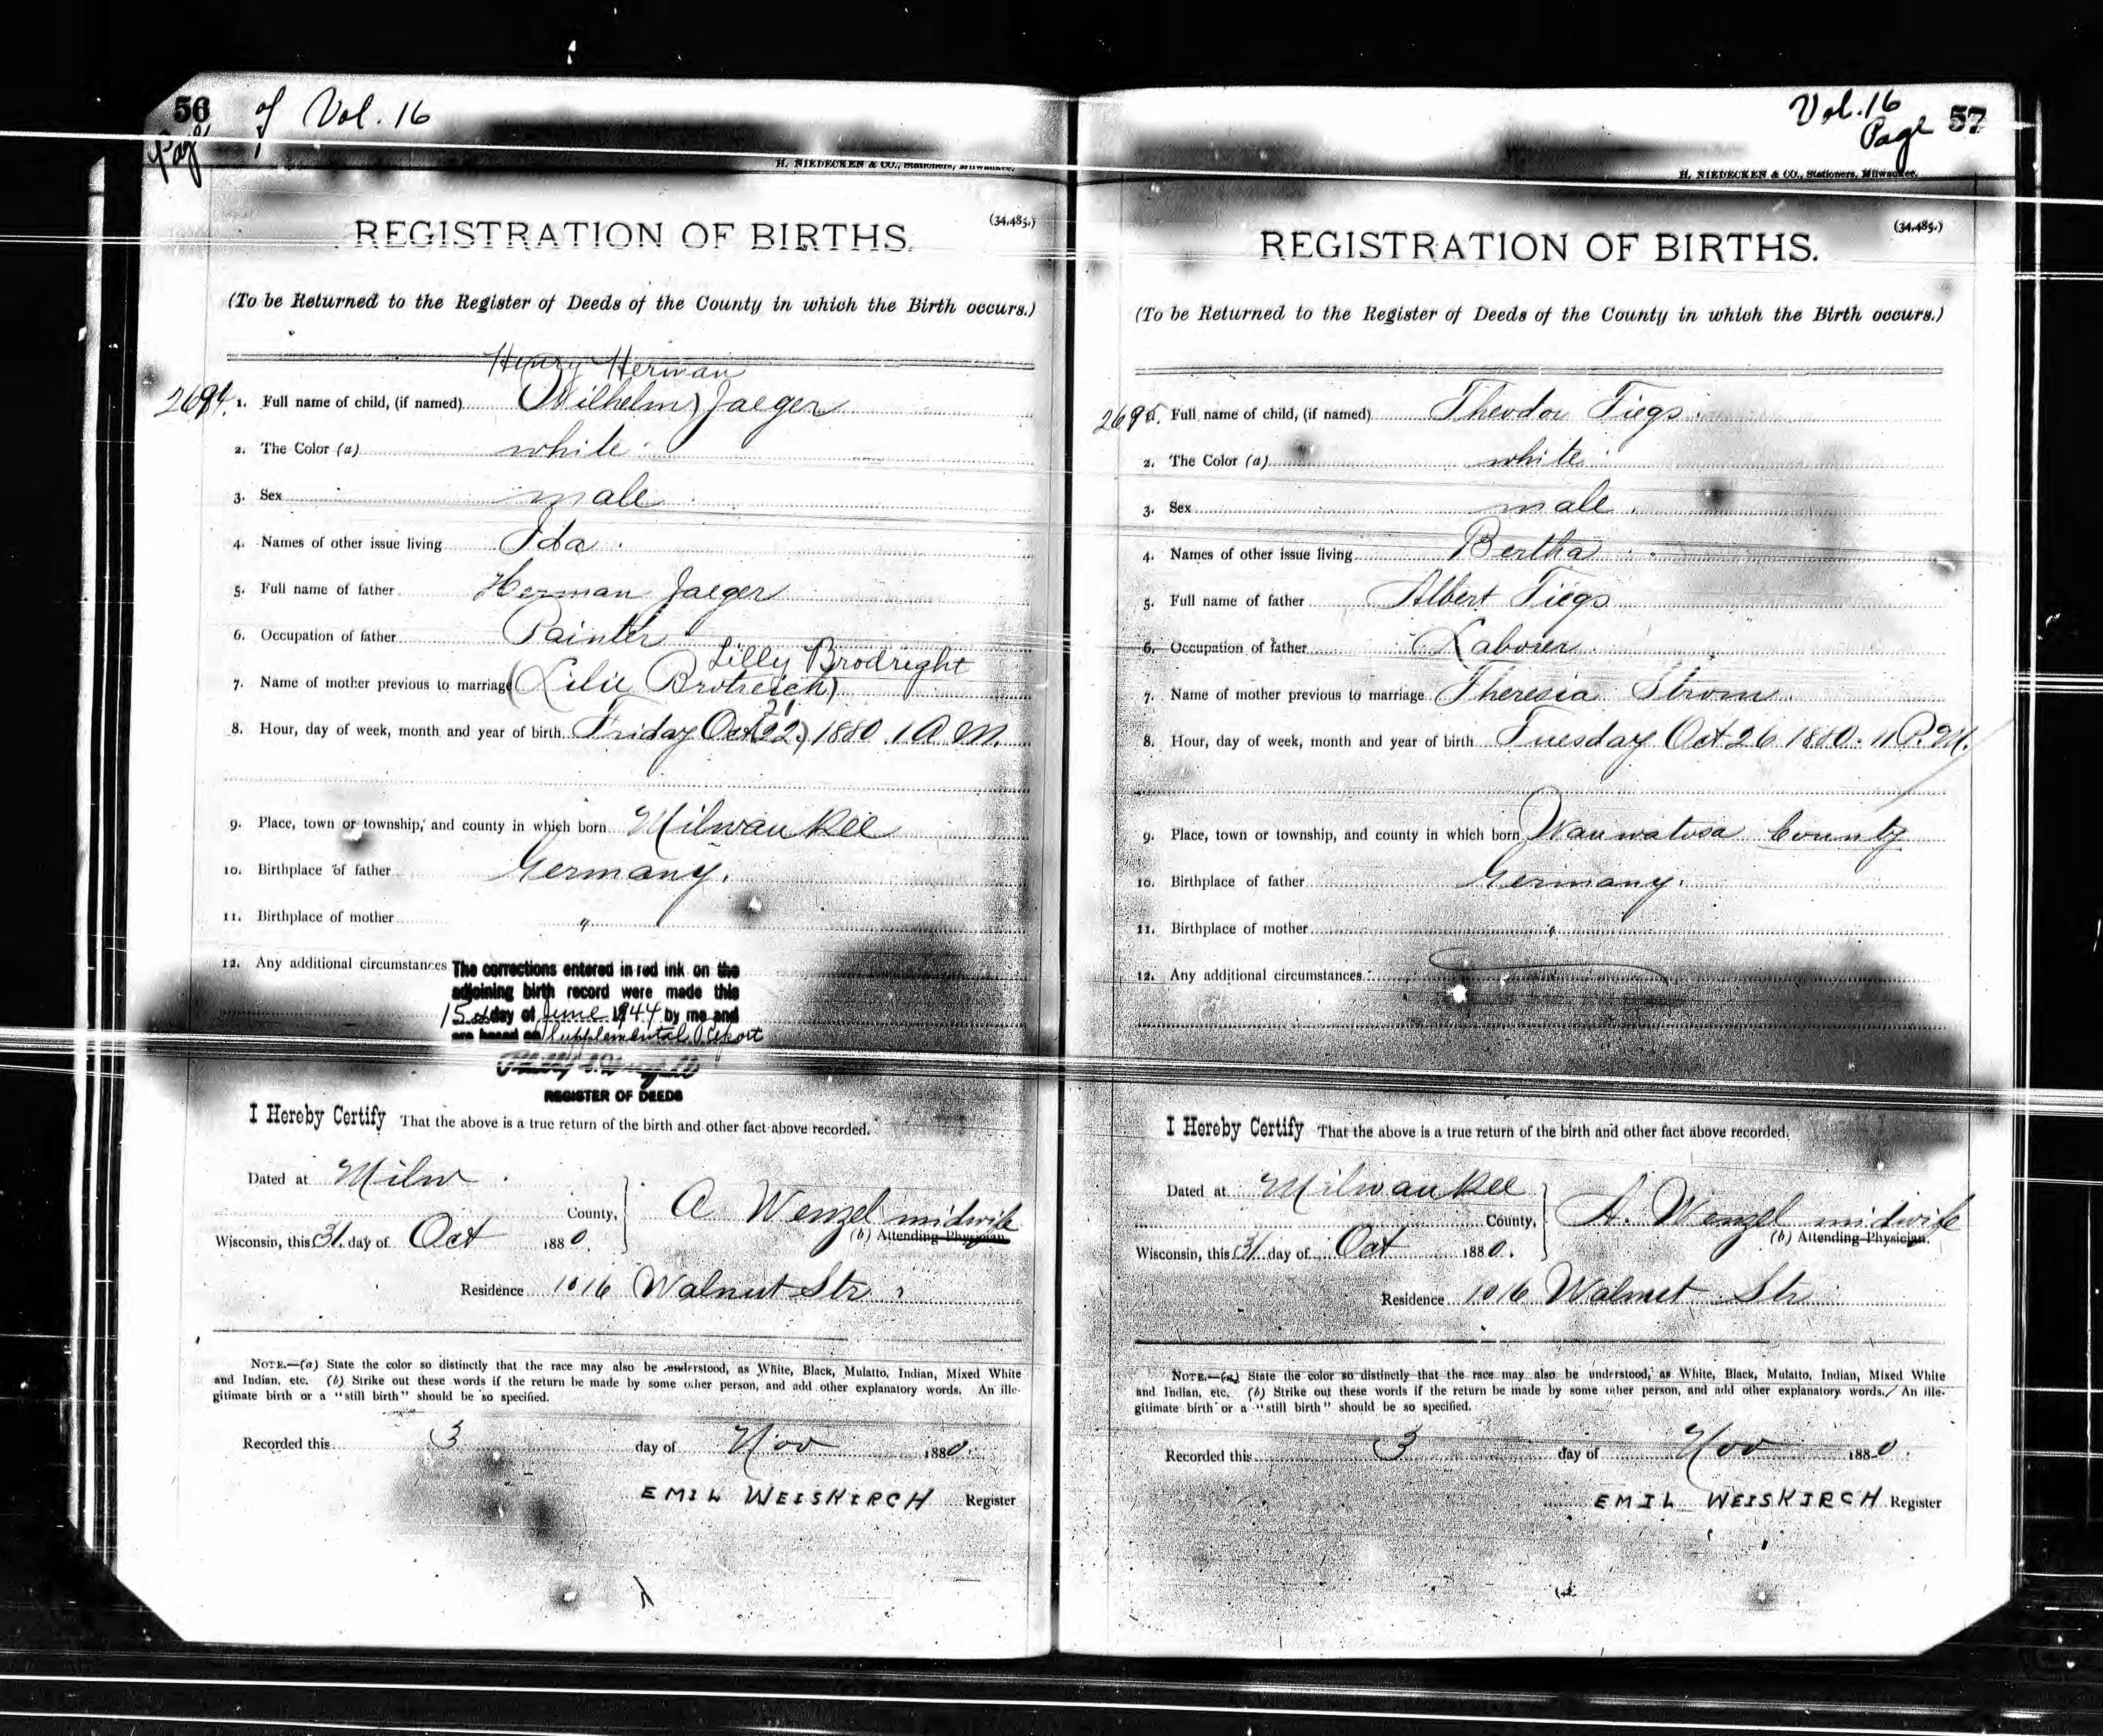 56 of Vol. 16
Page
H. NIEDECKEN & CO., Stationers, Milwaukee.
(34,485.)
REGISTRATION OF BIRTHS.
(To be Returned to the Register of Deeds of the County in which the Birth occurs.)
Henry Herman
2694. 1. Full name of child, (if named) (Wilhelm) Jaeger
2. The Color (a) white
3. Sex male
4. Names of other issue living Ida
5. Full name of father Herman Jaeger
6. Occupation of father Painter
Lilly Brodright
7. Name of mother previous to marriage (Lilie Brotreich)
21
8. Hour, day of week, month and year of birth Friday Oct (22) 1880. 1 A.M.
9. Place, town or township, and county in which born Milwaukee
10. Birthplace of father Germany.
11. Birthplace of mother "
12. Any additional circumstances The corrections entered in red ink on the
adjoining birth record were made this
15th day of June 1944 by me and
are based on Supplemental Report
REGISTER OF DEEDS
I Hereby Certify That the above is a true return of the birth and other fact above recorded.
Dated at Milw
County, A Wenzel midwife
Wisconsin, this 31. day of Oct 1880. (b) Attending Physician
Residence 1016 Walnut Str
NOTE.—(a) State the color so distinctly that the race may also be understood, as White, Black, Mulatto, Indian, Mixed White
and Indian, etc. (b) Strike out these words if the return be made by some other person, and add other explanatory words. An ille-
gitimate birth or a "still birth" should be so specified.
Recorded this 3 day of Nov 1880.
EMIL WEISKIRCH Register
Vol. 16
Page 57
H. NIEDECKEN & CO., Stationers, Milwaukee.
(34,485.)
REGISTRATION OF BIRTHS.
(To be Returned to the Register of Deeds of the County in which the Birth occurs.)
2695. Full name of child, (if named) Theodor Tiegs.
2. The Color (a) white
3. Sex male
4. Names of other issue living Bertha
5. Full name of father Albert Tiegs
6. Occupation of father Laborer
7. Name of mother previous to marriage Theresia Strom
8. Hour, day of week, month and year of birth Tuesday Oct 26 1880. 11 P.M.
9. Place, town or township, and county in which born Wauwatosa County
10. Birthplace of father Germany.
11. Birthplace of mother "
12. Any additional circumstances
I Hereby Certify That the above is a true return of the birth and other fact above recorded.
Dated at Milwaukee
County, A. Wenzel midwife
Wisconsin, this 31 day of Oct 1880. (b) Attending Physician.
Residence 1016 Walnut Str
NOTE.—(a) State the color so distinctly that the race may also be understood, as White, Black, Mulatto, Indian, Mixed White
and Indian, etc. (b) Strike out these words if the return be made by some other person, and add other explanatory words. An ille-
gitimate birth or a "still birth" should be so specified.
Recorded this 3 day of Nov 1880.
EMIL WEISKIRCH Register